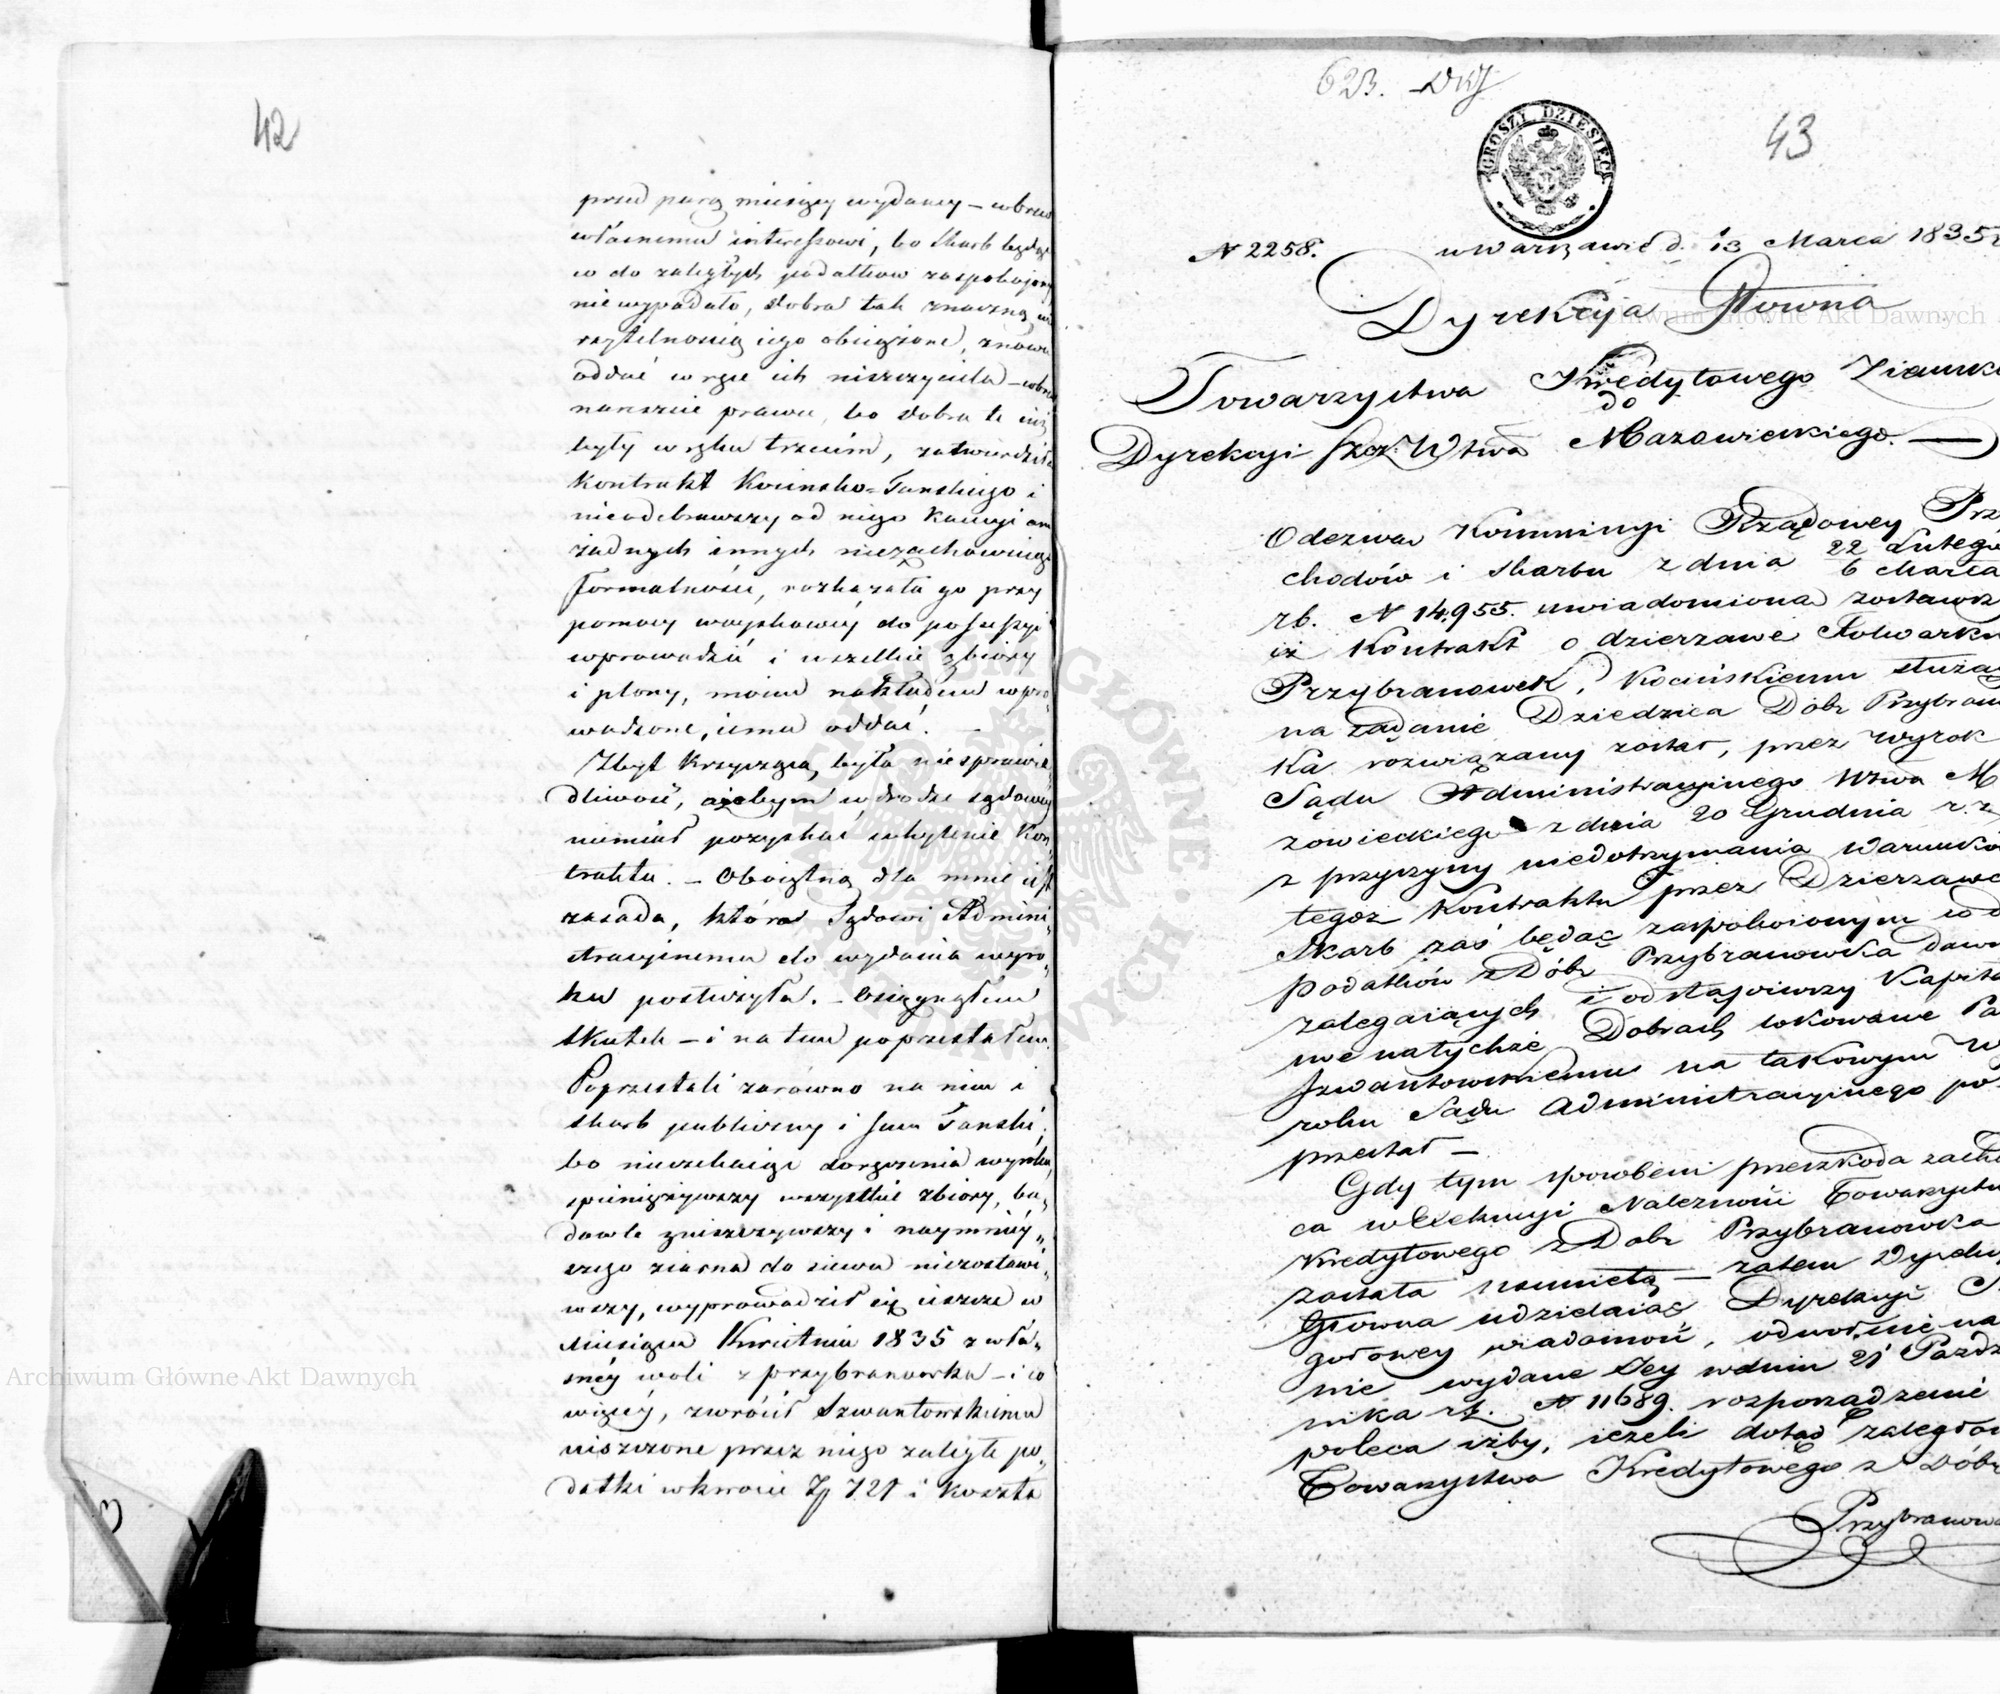 42
przed parą miesięcy wydaney – wbrew
własnemu interessowi, bo skarb będąc
co do zaległych podatków zaspokojony
niewypadało, dobra tak znaczną wie
rzytelnością iego obciążone, znowu
oddać w ręce ich niszczyciela – wbrew
nareszcie prawu, bo dobra te iuż
były w ręku trzecim, zatwierdziła
kontrakt Kocinsko-Tanskiego i
nieodebrawszy od niego kaucyi ani
żadnych innych niezachowuiąc
formalności, rozkazała go przy
pomocy woyskowéy do possessyi
wprowadzić i wszelkie zbiory
i plony, moim nakładem wpro-
wadzone, iemu oddać. –
Zbyt krzycząca, była niesprawie-
dliwość, ażebym w drodze sądowéy
niemiał pozyskać uchylenie kon-
traktu. – Oboiętną dla mnie iest
zasada, która Sądowi Admini-
stracyinemu do wydania wyro-
ku posłużyła. – Osiągnąłem
skutek – i na tem poprzestałem.
Poprzestali zarówno na nim i
skarb publiczny i sam Tanski,
bo nieczekaiąc doręczenia wyroku,
spieniężywszy wszystkie zbiory, bu-
dowle zniszczywszy i naymniéy-
szego ziarna do siewu niezostawi-
wszy, wyprowadził się ieszcze w
miesiącu Kwietniu 1835 z wła-
snéy woli z Przybranowka – i co
więcéy, zwrócił Szwantowskiemu
uiszczone przez niego zaległe po-
datki w kwocie Zp 721 i koszta
3
623.
43
GROSZY DZIESIĘĆ
N 2258. w Warszawie d. 13 Marca 1835 r
Dyrekcyja Główna
Towarzystwa Kredytowego Ziemski
do
Dyrekcyi Szcz: Wtwa Mazowieckiego. —
Odezwą Kommissyi Rządowey Prz
chodów i Skarbu z dnia 22 Lutego
6 Marca
rb. N 14,955. uwiadomiona zostawsz
iż Kontrakt o dzierzawę Folwarku
Przybranówek, Kocińskiemu służąc
na żądanie Dziedzica Dóbr Przybran
ka rozwiązany został, przez wyrok
Sądu Administracyinego Wztwa M
zowieckiego z dnia 20 Grudnia r. z
z przyczyny niedotrzymania warunkó
tegoż Kontraktu przez Dzierzawc
Skarb zaś będąc zaspokoionym co d
podatków z Dóbr Przybranowka dawn
zalegaiących i odstąpiwszy Kapita
we na tychże Dobrach lokowane Pa
Szwantowskiemu na takowym Wy
roku Sądu Administracyinego po
przestał –
Gdy tym sposobem przeszkoda zacho
ca w Exekucyi Należności Towarzystw
Kredytowego z Dóbr Przybranowka
została usuniętą – zatem Dyrekcy
Główna udzielaiąc Dyrekcyi S
gółowey wiadomość, odnośnie na
nie wydane Jey w dniu 21 Paźdz
nika r. z. N 11689. rozporządzenie
poleca iżby, ieżeli dotąd zaległoś
Towarzystwa Kredytowego z Dóbr
Przybranowk
Archiwum Główne Akt Dawnych
Archiwum Główne Akt Dawnych
ARCHIWUM GŁÓWNE AKT DAWNYCH